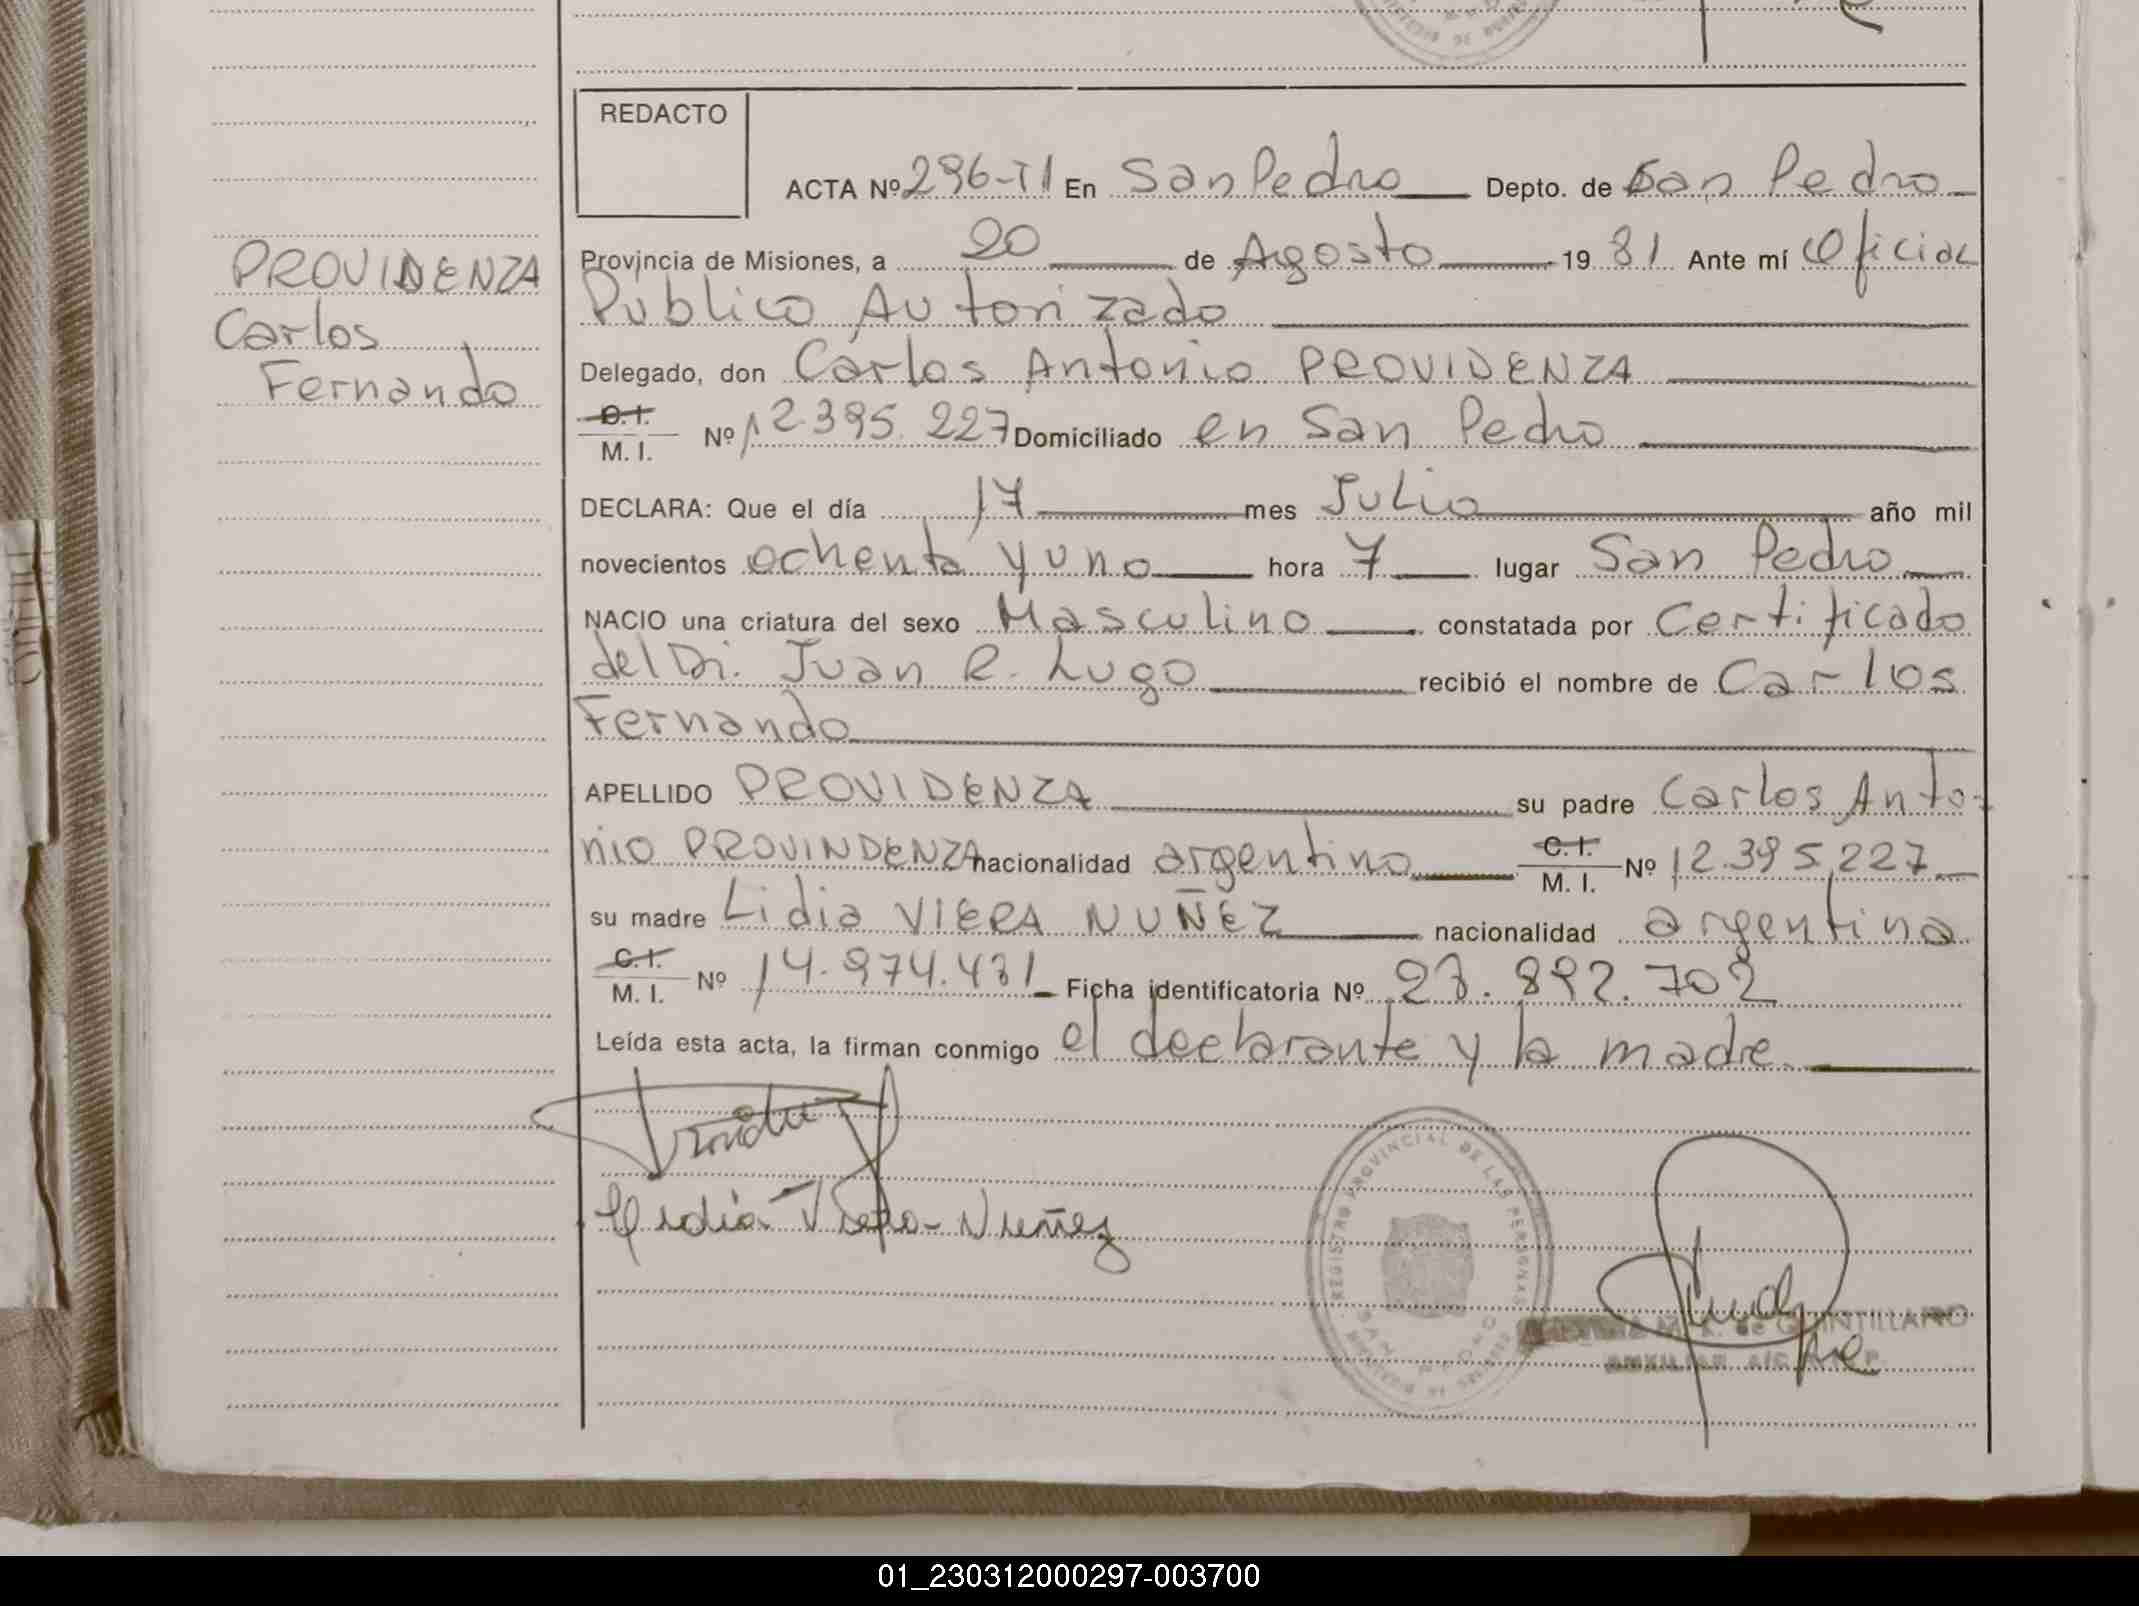 REDACTO
ACTA Nº 296-TI En San Pedro Depto. de San Pedro
Provincia de Misiones, a 20 de Agosto 1981 Ante mí Oficial
Publico Autorizado
PROVIDENZA
Carlos
Fernando
Delegado, don Carlos Antonio PROVIDENZA
C.I.
M. I. Nº 12.395.227 Domiciliado en San Pedro
DECLARA: Que el día 17 mes Julio año mil
novecientos ochenta y uno hora 7 lugar San Pedro
NACIO una criatura del sexo Masculino constatada por Certificado
del Dr. Juan R. Lugo recibió el nombre de Carlos
Fernando
APELLIDO PROVIDENZA su padre Carlos Anto-
nio PROVINDENZA nacionalidad argentino C.I. M. I. Nº 12.395.227
su madre Lidia VIERA NUÑEZ nacionalidad argentina
C.I.
M. I. Nº 14.974.431 Ficha identificatoria Nº 28.892.702
Leída esta acta, la firman conmigo el declarante y la madre.
Lidia Viera-Nuñez
REGISTRO PROVINCIAL DE LAS PERSONAS
SAN PEDRO
de QUINTILLANO
AUXILIAR A/C
01_230312000297-003700